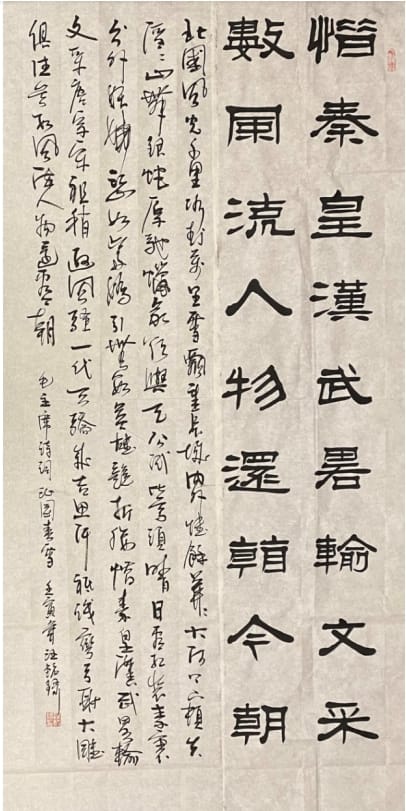 惜秦皇漢武畧輸文采
數風流人物還看今朝
北國風光千里冰封萬里雪飄望長城內外惟餘莽莽大河上下頓失
滔滔山舞銀蛇原馳蠟象欲與天公試比高須晴日看紅裝素裹
分外妖嬈江山如此多嬌引無數英雄競折腰惜秦皇漢武畧輸
文采唐宗宋祖稍遜風騷一代天驕成吉思汗祇識彎弓射大雕
俱往矣數風流人物還看今朝 毛主席詩詞沁園春雪 壬寅